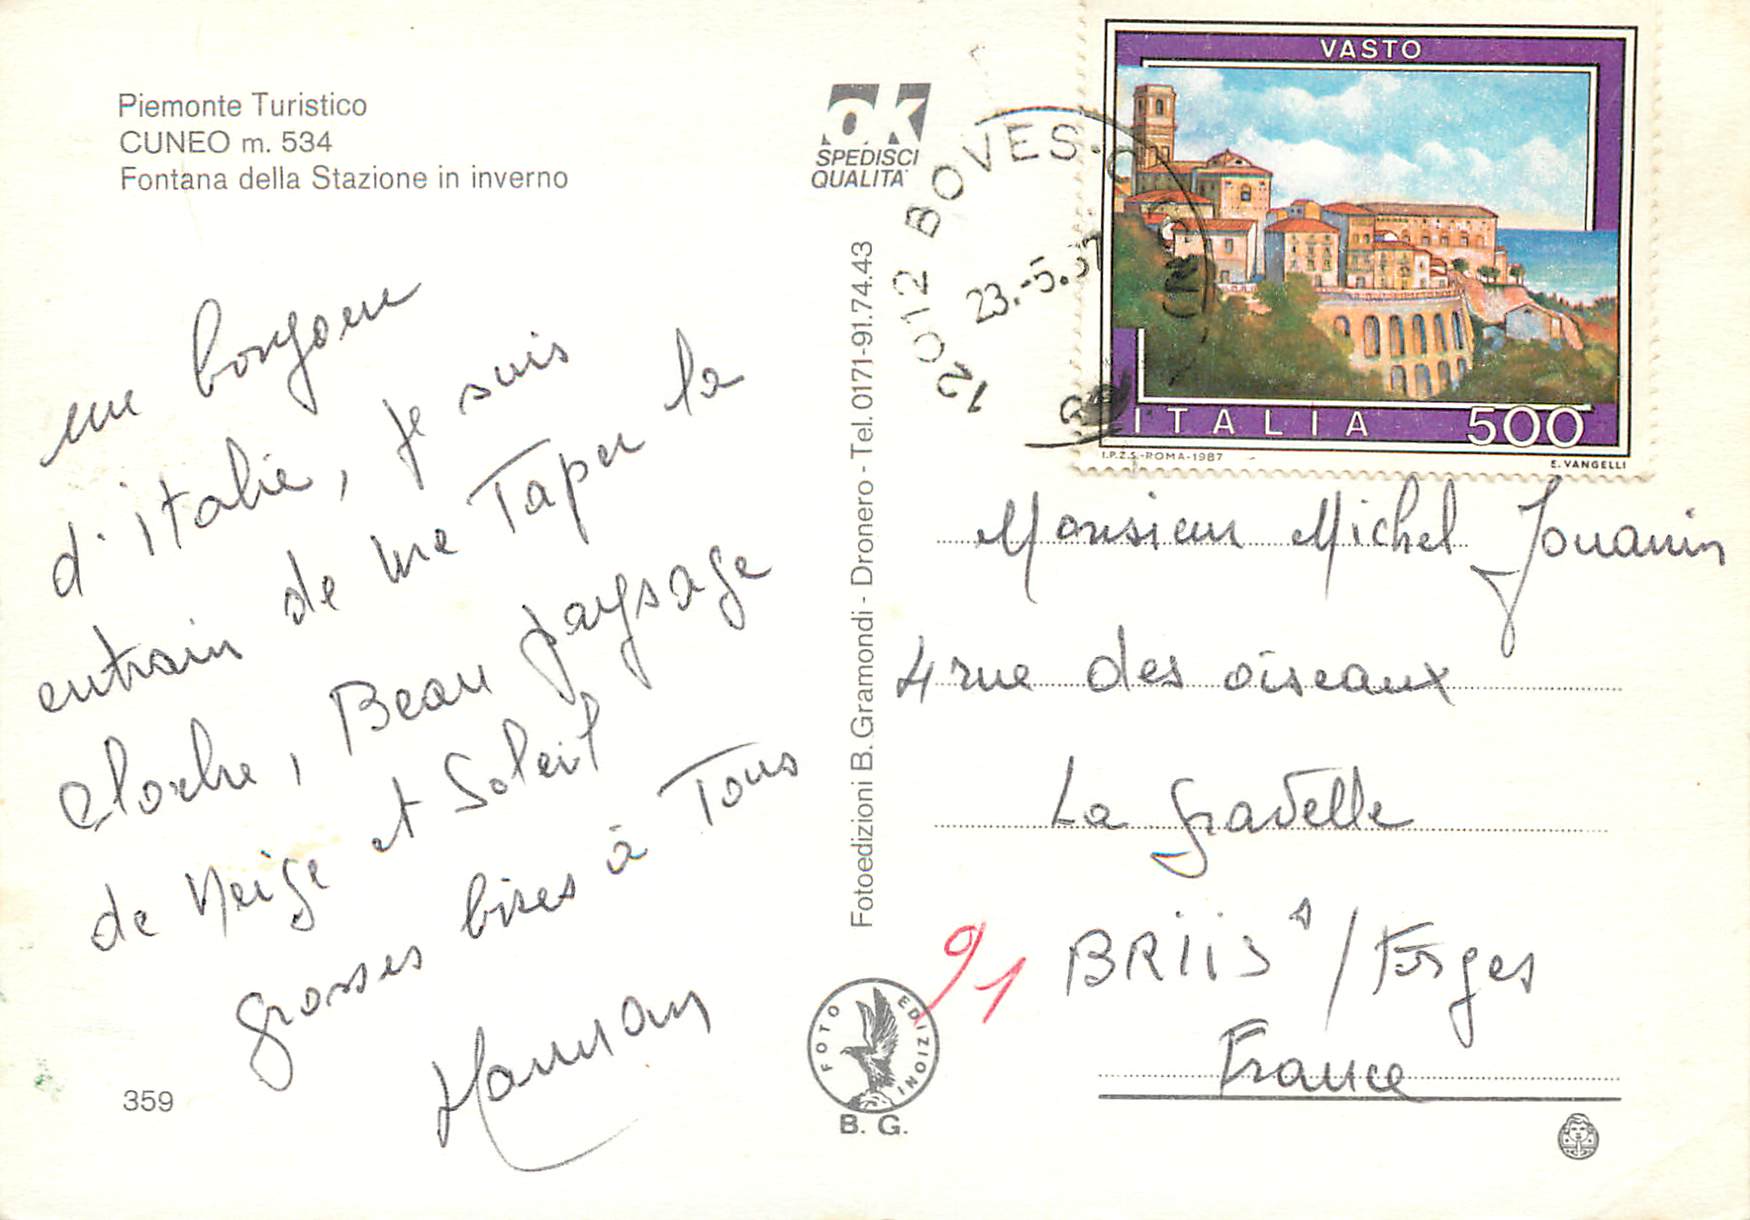 Piemonte Turistico
CUNEO m. 534
Fontana della Stazione in inverno
un bonjour
d'italie, je suis
entrain de me Taper la
cloche, Beau paysage
de Neige et Soleil
grosses bises à Tous
359
OK
SPEDISCI
QUALITA'
Fotoedizioni B. Gramondi - Dronero - Tel. 0171-91.74.43
FOTO EDIZIONI
B. G.
12012 BOVES
23.-5.
VASTO
ITALIA 500
I.P.Z.S.-ROMA-1987
E. VANGELLI
Monsieur Michel Jouanin
4 rue des oiseaux
La gravelle
91
BRIIS s/Forges
France